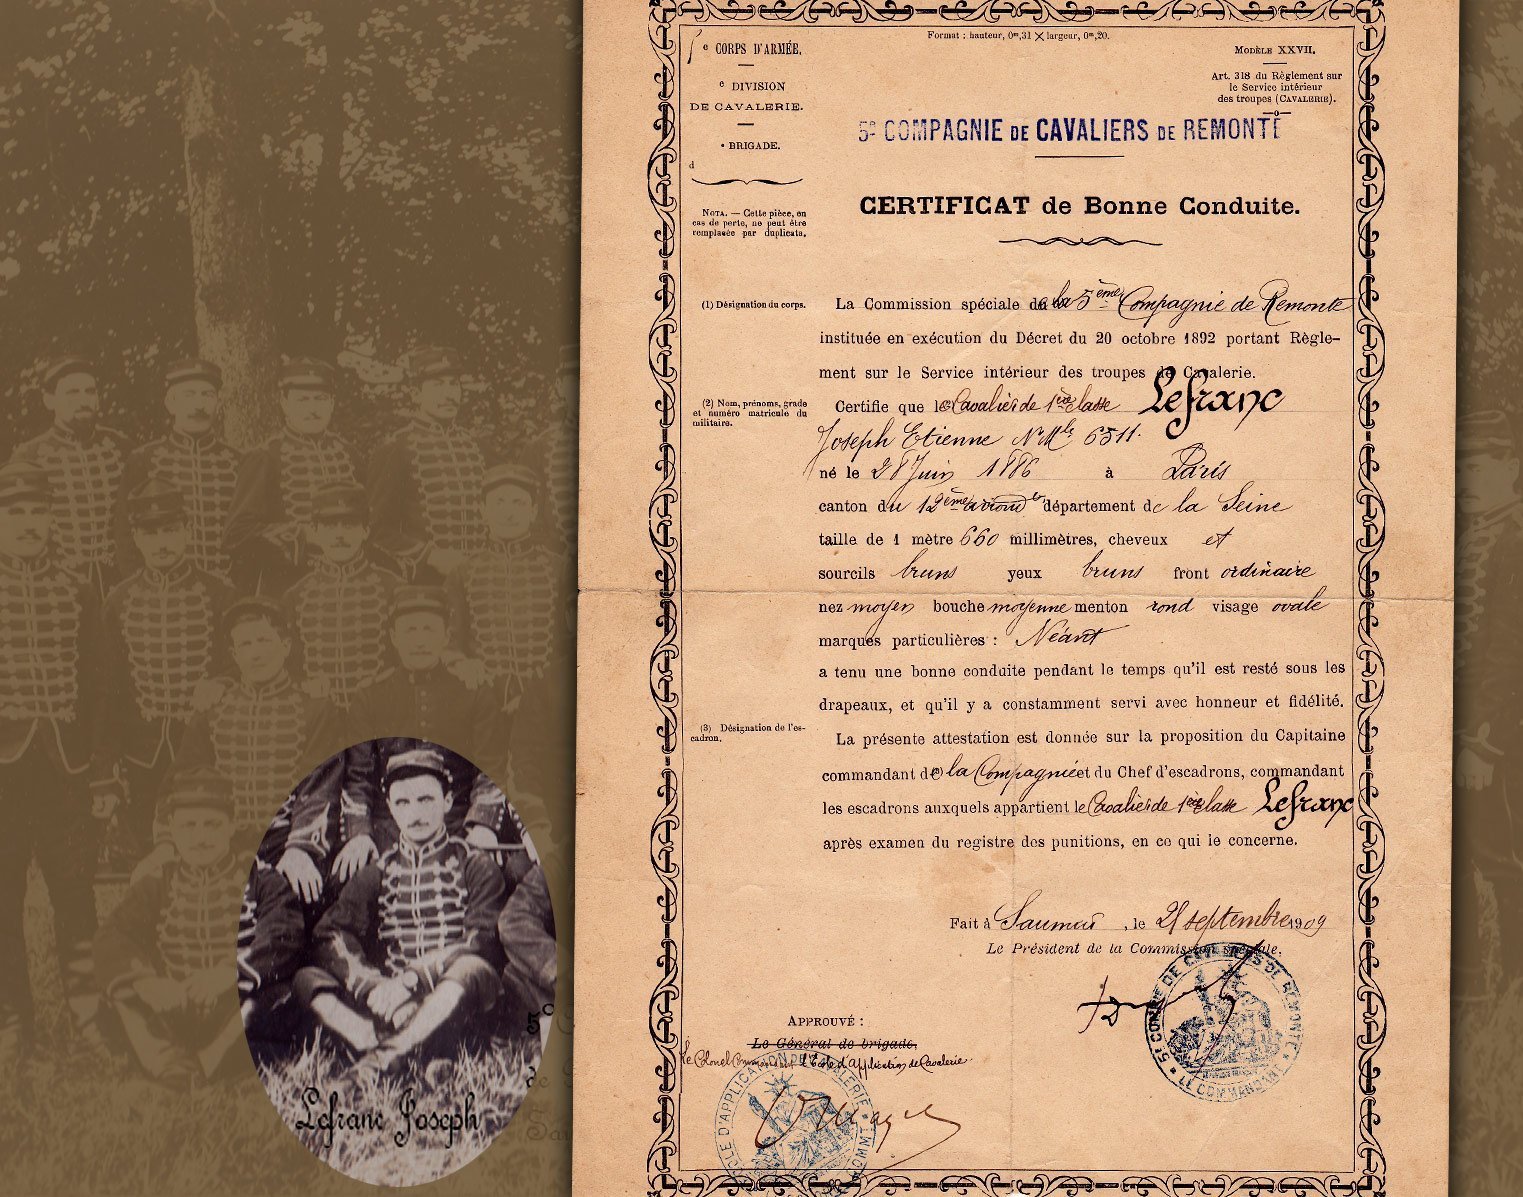 Format : hauteur, 0m,31 × largeur, 0m,20.
e CORPS D'ARMÉE.
e DIVISION
DE CAVALERIE.
e BRIGADE.
d
NOTA. — Cette pièce, en
cas de perte, ne peut être
remplacée par duplicata.
MODÈLE XXVII.
Art. 318 du Règlement sur
le Service intérieur
des troupes (CAVALERIE).
5e COMPAGNIE DE CAVALIERS DE REMONTE
CERTIFICAT de Bonne Conduite.
(1) Désignation du corps.
La Commission spéciale de la 5ème Compagnie de Remonte
instituée en exécution du Décret du 20 octobre 1892 portant Règle-
ment sur le Service intérieur des troupes de Cavalerie.
(2) Nom, prénoms, grade
et numéro matricule du
militaire.
Certifie que le Cavalier de 1ère classe Lefranc
Joseph Etienne N° Mle 6511.
né le 28 Juin 1886 à Paris
canton du 12ème arrondt département de la Seine
taille de 1 mètre 660 millimètres, cheveux et
sourcils bruns yeux bruns front ordinaire
nez moyen bouche moyenne menton rond visage ovale
marques particulières : Néant
a tenu une bonne conduite pendant le temps qu'il est resté sous les
drapeaux, et qu'il y a constamment servi avec honneur et fidélité.
(3) Désignation de l'es-
cadron.
La présente attestation est donnée sur la proposition du Capitaine
commandant de la Compagnie et du Chef d'escadrons, commandant
les escadrons auxquels appartient le Cavalier de 1ère classe Lefranc
après examen du registre des punitions, en ce qui le concerne.
Fait à Saumur, le 21 septembre 1909
Le Président de la Commission spéciale.
5e COMPAGNIE DE CAVALIERS DE REMONTE
LE COMMANDANT
APPROUVÉ :
Le Général de brigade,
Le Colonel Commandant l'Ecole d'application de Cavalerie
ECOLE D'APPLICATION DE CAVALERIE
Lefranc Joseph